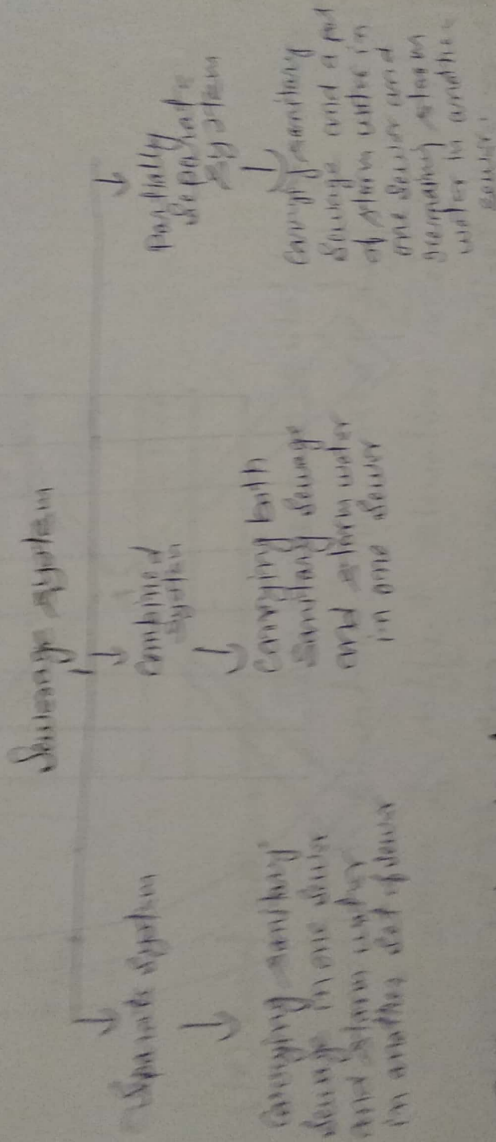 Sewerage system
Separate system
Carrying sanitary
sewage in one sewer
and storm water
in another set of sewer
Combined
system
Carrying both
sanitary sewage
and storm water
in one sewer
Partially
Separate
System
Carrying sanitary
sewage and a part
of storm water in
one sewer and
remaining storm
water in another
sewer.